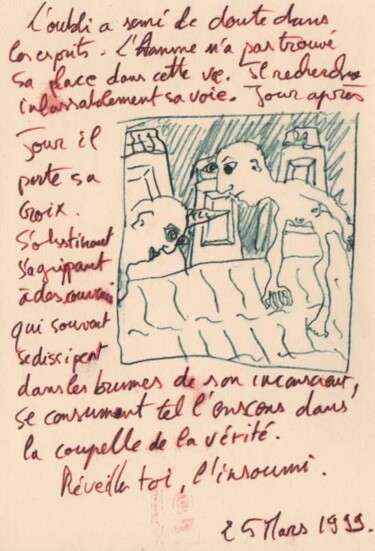 L'oubli a semé de doute dans
les esprits. L'Homme n'a pas trouvé
sa place dans cette vie. Il recherche
inlassablement sa voie. Jour après
Jour il
porte sa
croix.
S'obstinant
s'agrippant
à des souvenirs
qui souvent
se dissipent
dans les brumes de son inconscient,
se consument tel l'encens dans
la coupelle de la vérité.
Réveille toi, l'insoumi.
25 Mars 1999.